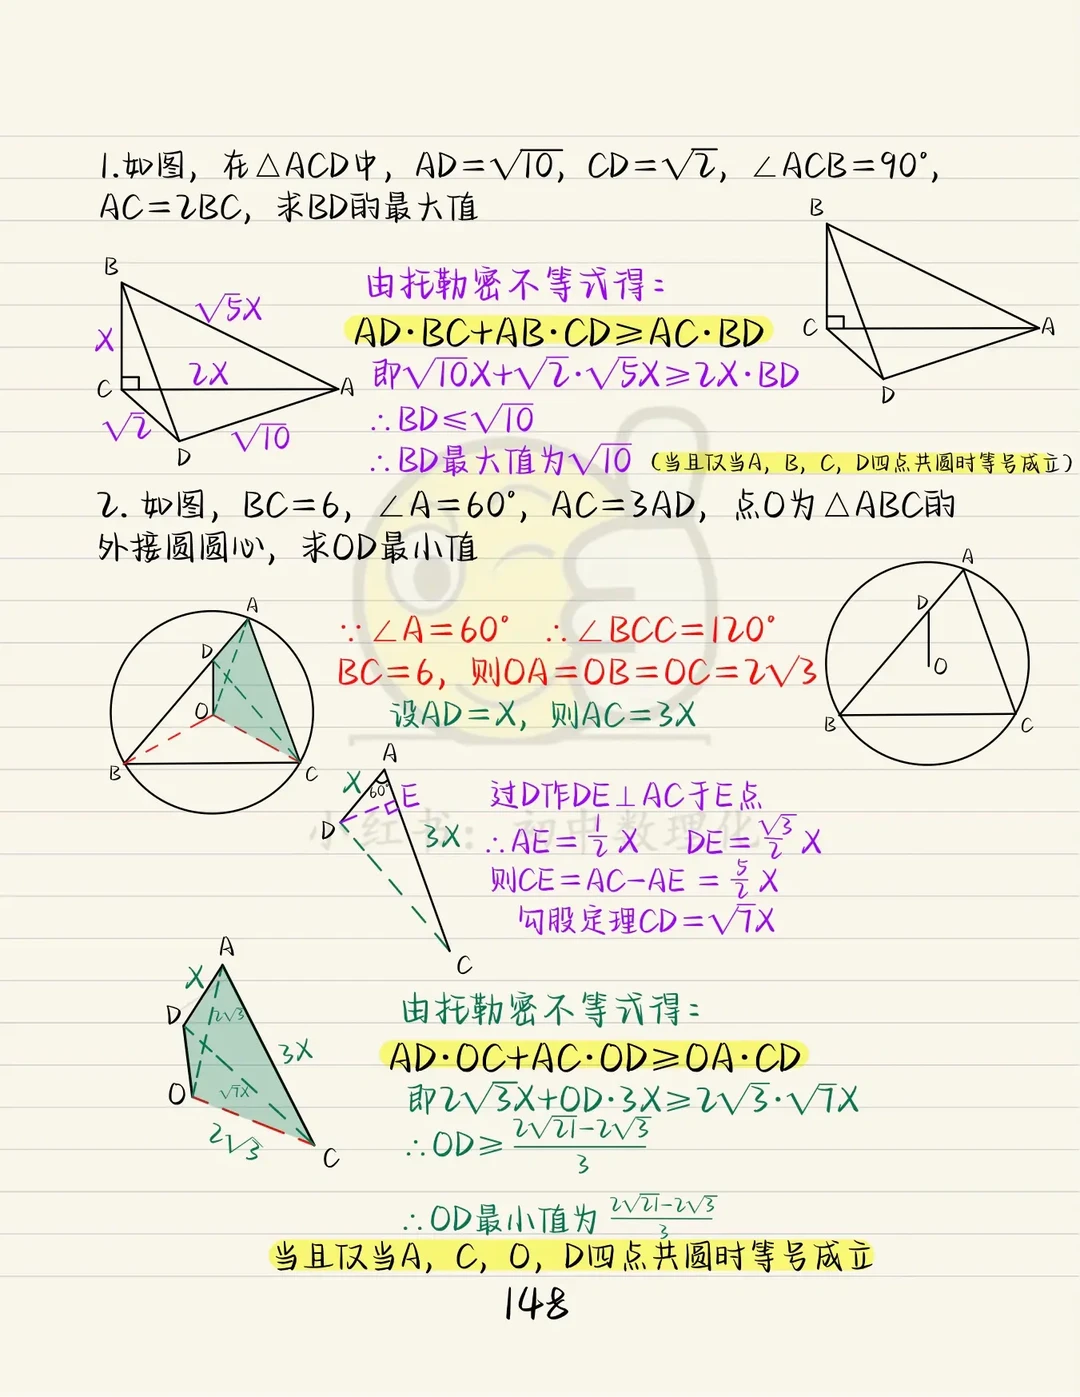 1.如图，在△ACD中，AD=√10，CD=√2，∠ACB=90°，
AC=2BC，求BD的最大值
B
A
C
D
B
√5X
X
2X
C
A
√2
√10
D
由托勒密不等式得：
AD·BC+AB·CD≥AC·BD
即√10X+√2·√5X≥2X·BD
∴BD≤√10
∴BD最大值为√10（当且仅当A，B，C，D四点共圆时等号成立）
2. 如图，BC=6，∠A=60°，AC=3AD，点O为△ABC的
外接圆圆心，求OD最小值
A
D
O
B
C
A
D
O
B
C
∵∠A=60° ∴∠BCC=120°
BC=6，则OA=OB=OC=2√3
设AD=X，则AC=3X
A
X
60°
E
D
3X
C
过D作DE⊥AC于E点
∴AE=1/2 X DE=√3/2 X
则CE=AC-AE=5/2 X
勾股定理CD=√7X
小红书：初中数理化
A
X
D
2√3
3X
O
√7X
2√3
C
由托勒密不等式得：
AD·OC+AC·OD≥OA·CD
即2√3X+OD·3X≥2√3·√7X
∴OD≥(2√21-2√3)/3
∴OD最小值为(2√21-2√3)/3
当且仅当A，C，O，D四点共圆时等号成立
148